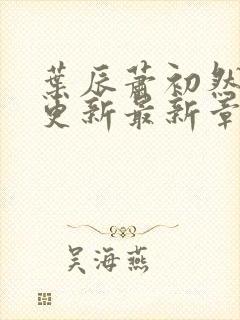 葉辰蕭初然
更新最新章
吴海燕